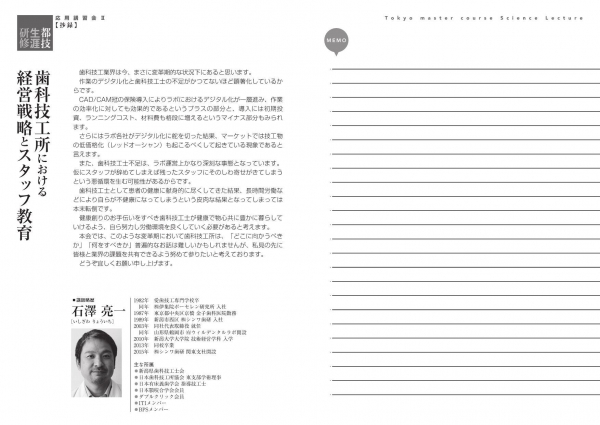 都技
生涯
研修
応用講習会Ⅱ
【抄録】
歯科技工所における
経営戦略とスタッフ教育
歯科技工業界は今、まさに変革期的な状況下にあると思います。
作業のデジタル化と歯科技工士の不足がかつてないほど顕著化しているか
らです。
CAD/CAM冠の保険導入によりラボにおけるデジタル化が一層進み、作業
の効率化に対しても効果的であるというプラスの部分と、導入には初期投
資、ランニングコスト、材料費も格段に増えるというマイナス部分もみられ
ます。
さらにはラボ各社がデジタル化に舵を切った結果、マーケットでは技工物
の低価格化（レッドオーシャン）も起こるべくして起きている現象であると
言えます。
また、歯科技工士不足は、ラボ運営上かなり深刻な事態となっています。
仮にスタッフが辞めてしまえば残ったスタッフにそのしわ寄せがきてしまう
という悪循環を生む可能性があるからです。
歯科技工士として患者の健康に献身的に尽くしてきた結果、長時間労働な
どにより自らが不健康になってしまうという皮肉な結果となってしまっては
本末転倒です。
健康創りのお手伝いをすべき歯科技工士が健康で物心共に豊かに暮らして
いけるよう、自ら努力し労働環境を良くしていく必要があると考えます。
本会では、このような変革期において歯科技工所は、「どこに向かうべき
か」「何をすべきか」普遍的なお話は難しいかもしれませんが、私見の先に
皆様と業界の課題を共有できるよう努めて参りたいと考えております。
どうぞ宜しくお願い申し上げます。
●講師略歴
石澤 亮一
［いしざわ りょういち］
1982年 愛歯技工専門学校卒
同年 ㈱伊集院ポーセレン研究所 入社
1987年 東京都中央区京橋 金子歯科医院勤務
1989年 新潟市西区 ㈱シンワ歯研 入社
2003年 同社代表取締役 就任
同年 山形県鶴岡市 ㈲ウィルデンタルラボ開設
2010年 新潟大学大学院 技術経営学科 入学
2013年 同校卒業
2015年 ㈱シンワ歯研 関東支社開設
主な所属
＊新潟県歯科技工士会
＊日本歯科技工所協会 東支部学術理事
＊日本有床義歯学会 指導技工士
＊日本顎咬合学会会員
＊ダブルクリック会員
＊ITIメンバー
＊IIPSメンバー
Tokyo master course Science Lecture
MEMO